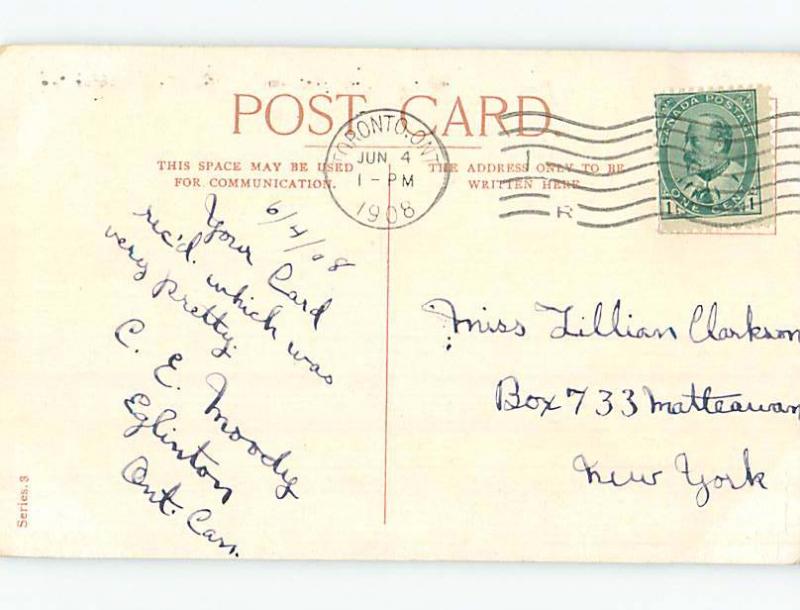 POST CARD
THIS SPACE MAY BE USED
FOR COMMUNICATION.
THE ADDRESS ONLY TO BE
WRITTEN HERE
TORONTO, ONT.
JUN 4
1 - PM
1908
R
CANADA POSTAGE
ONE CENT
1 1
6/4/08
Your Card
rec'd. which was
very pretty.
C. E. Moody
Eglinton
Ont. Can.
Miss Lillian Clarkson
Box 733 Matteawan
New York
Series. 3